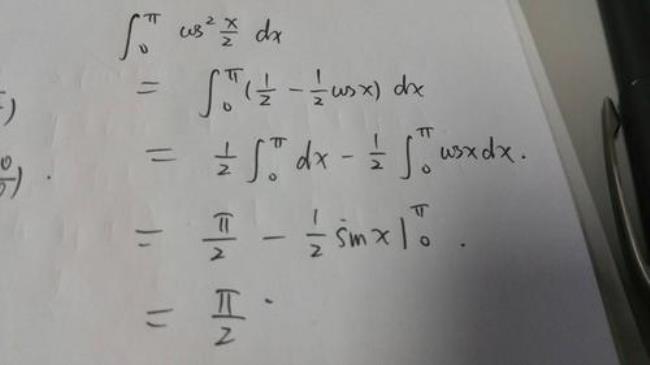 ∫₀^π cos² x/2 dx
= ∫₀^π (1/2 - 1/2 cosx) dx
= 1/2 ∫₀^π dx - 1/2 ∫₀^π cosxdx.
= π/2 - 1/2 sinx |₀^π .
= π/2 .